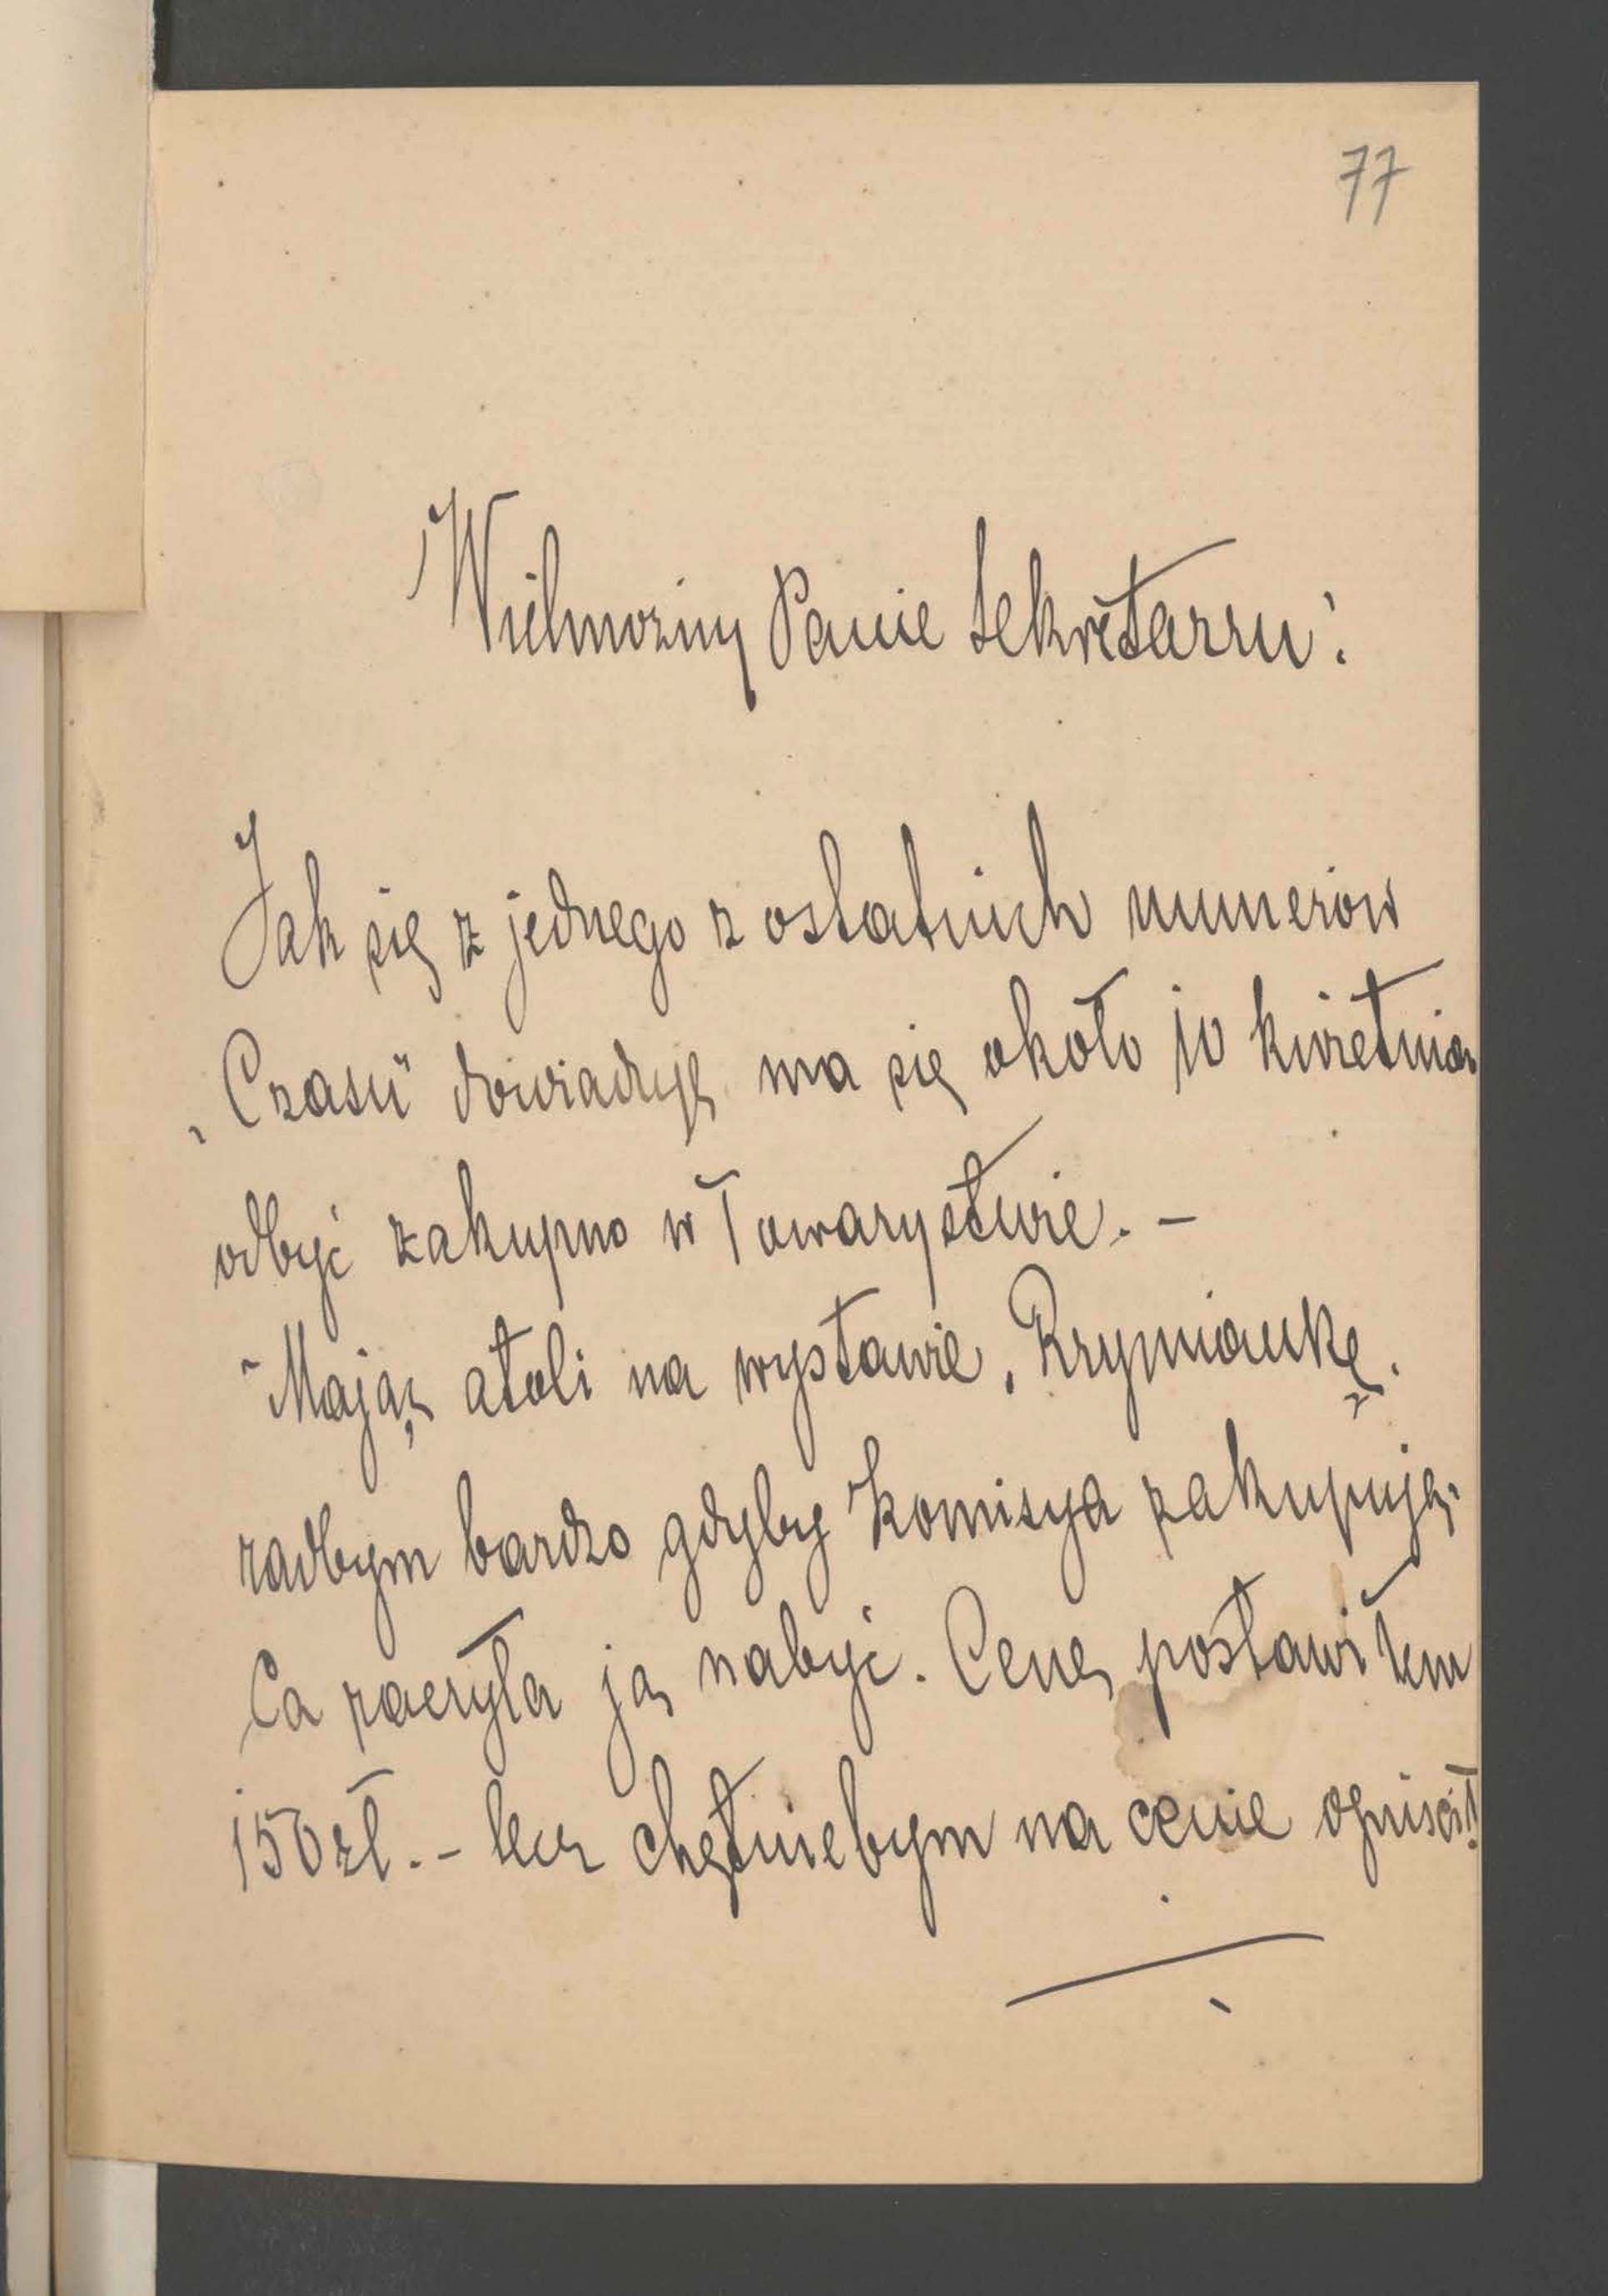 77
Wielmożny Panie Sekretarzu!
Jak się z jednego z ostatnich numerów
„Czasu" dowiaduję ma się około 10 kwietnia
odbyć zakupno w Towarystwie. –
Mając atoli na wystawie „Rzymiankę"
radbym bardzo gdyby Komisya zakupują-
ca raczyła ją nabyć. Cenę postawiłem
150 zł. – lecz chętniebym na cenie opuścił!